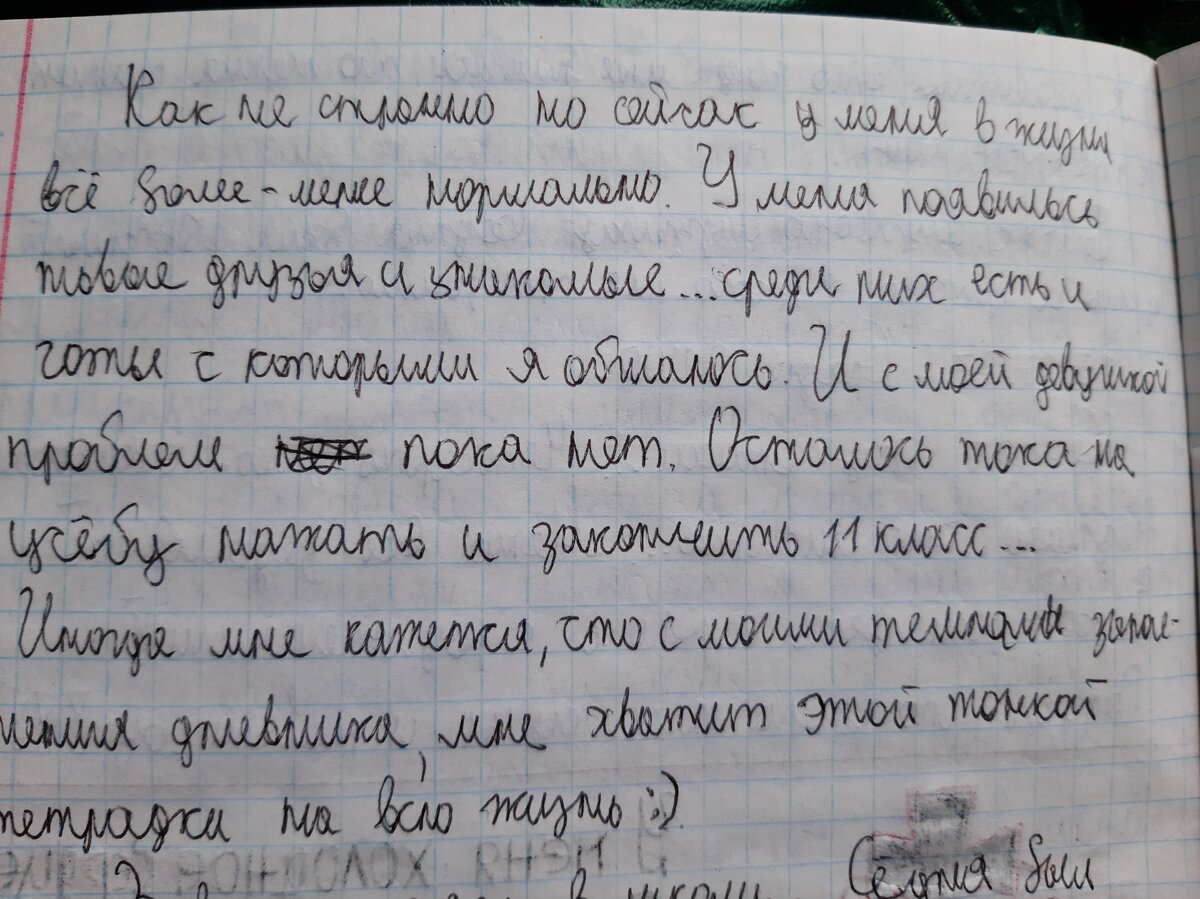 Как не странно но сейчас у меня в жизни
всё более-менее нормально. У меня появились
новые друзья и знакомые... среди них есть и
готы с которыми я общаюсь. И с моей девушкой
проблем пока нет. Осталось тока на
учёбу нажать и закончить 11 класс...
Иногда мне кажется, что с моими темпами запол-
нения дневника, мне хватит этой тонкой
тетрадки на всю жизнь :)
У МЕНЯ ХОЛОДНОЕ СЕРДЦЕ
в школу Сёдня был